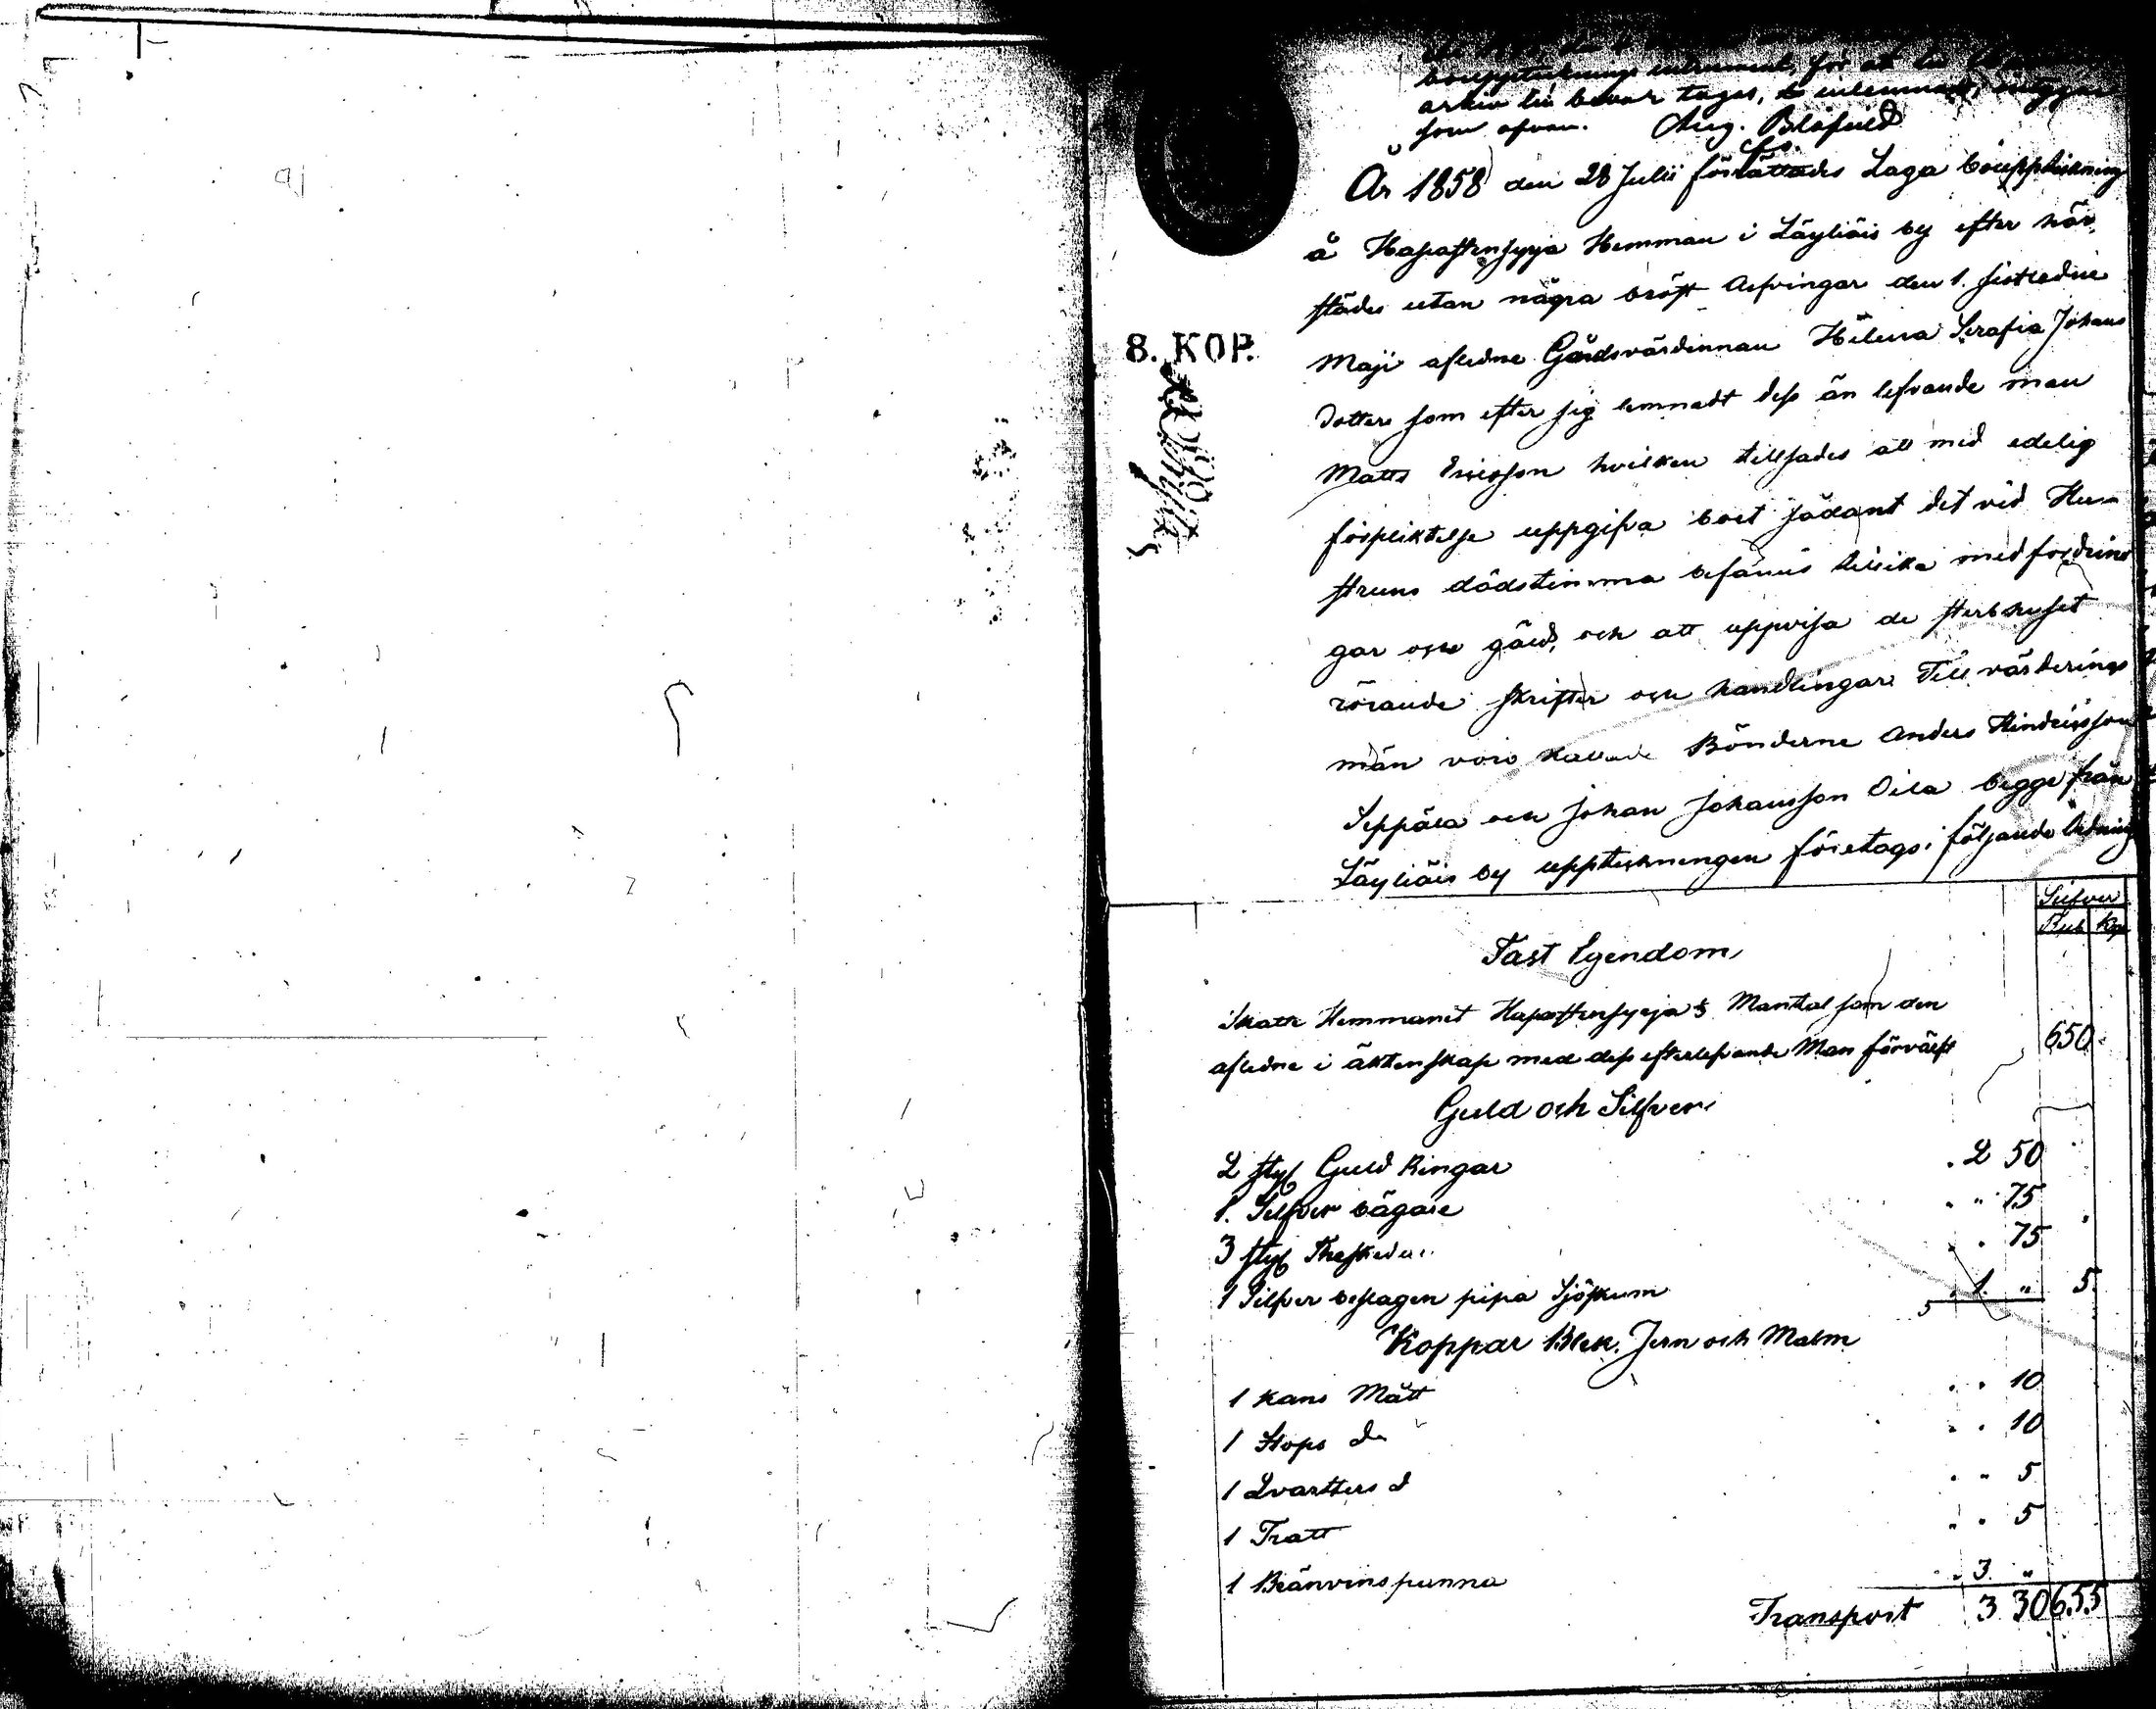 bouppteckningsinstrument, för at till
arkiv till bevar tagas, inlemnadt, intygar
som ofvan. Aug. Blåfield
År 1858 den 28 Julii förrättades Laga bouppteckning
å Haapastensyrja Hemman i Läyliäis by efter här-
städes utan några bröst Arfvingar den 1. sistledne
Maji aflidne Gårdsvärdinnan Helena Serafia Johans
8. KOP.
dotter som efter sig lemnadt dess än lefvande man
Matts Ericsson hvilken tillsades att med edelig
förpliktelse uppgifva boet sådant det vid Hu-
struns dödstimma befanns tillika med fordrin-
gar och gäld, och att uppvisa de sterbhuset
rörande skrifter och handlingar Till värderings
män voro kallade Bönderne Anders Hindersson
Seppälä och Johan Johansson Oila begge från
Läyliäis by uppteckningen företogs i följande Ordning
Silfver
Rub Kop
Fast Egendom
Skatte Hemmanet Mantal som den
aflidne i äktenskap med dess efterlefvande Man förvärft 650
Guld och Silfver
2 styck Guld Ringar . 2 50
1. Silfver bägare . " 75
3 styck Theskedar . . 75
1 Silfver beslagen pipa Sjöskum . 1. " 5.
5
Koppar Bleck. Jern och Malm
1 kans Mått . . 10
1 Stops do . . 10
1 Qvarters d . " 5
1 Tratt " . 5
1 Bränvins panna . 3. "
Transport 3 30 655